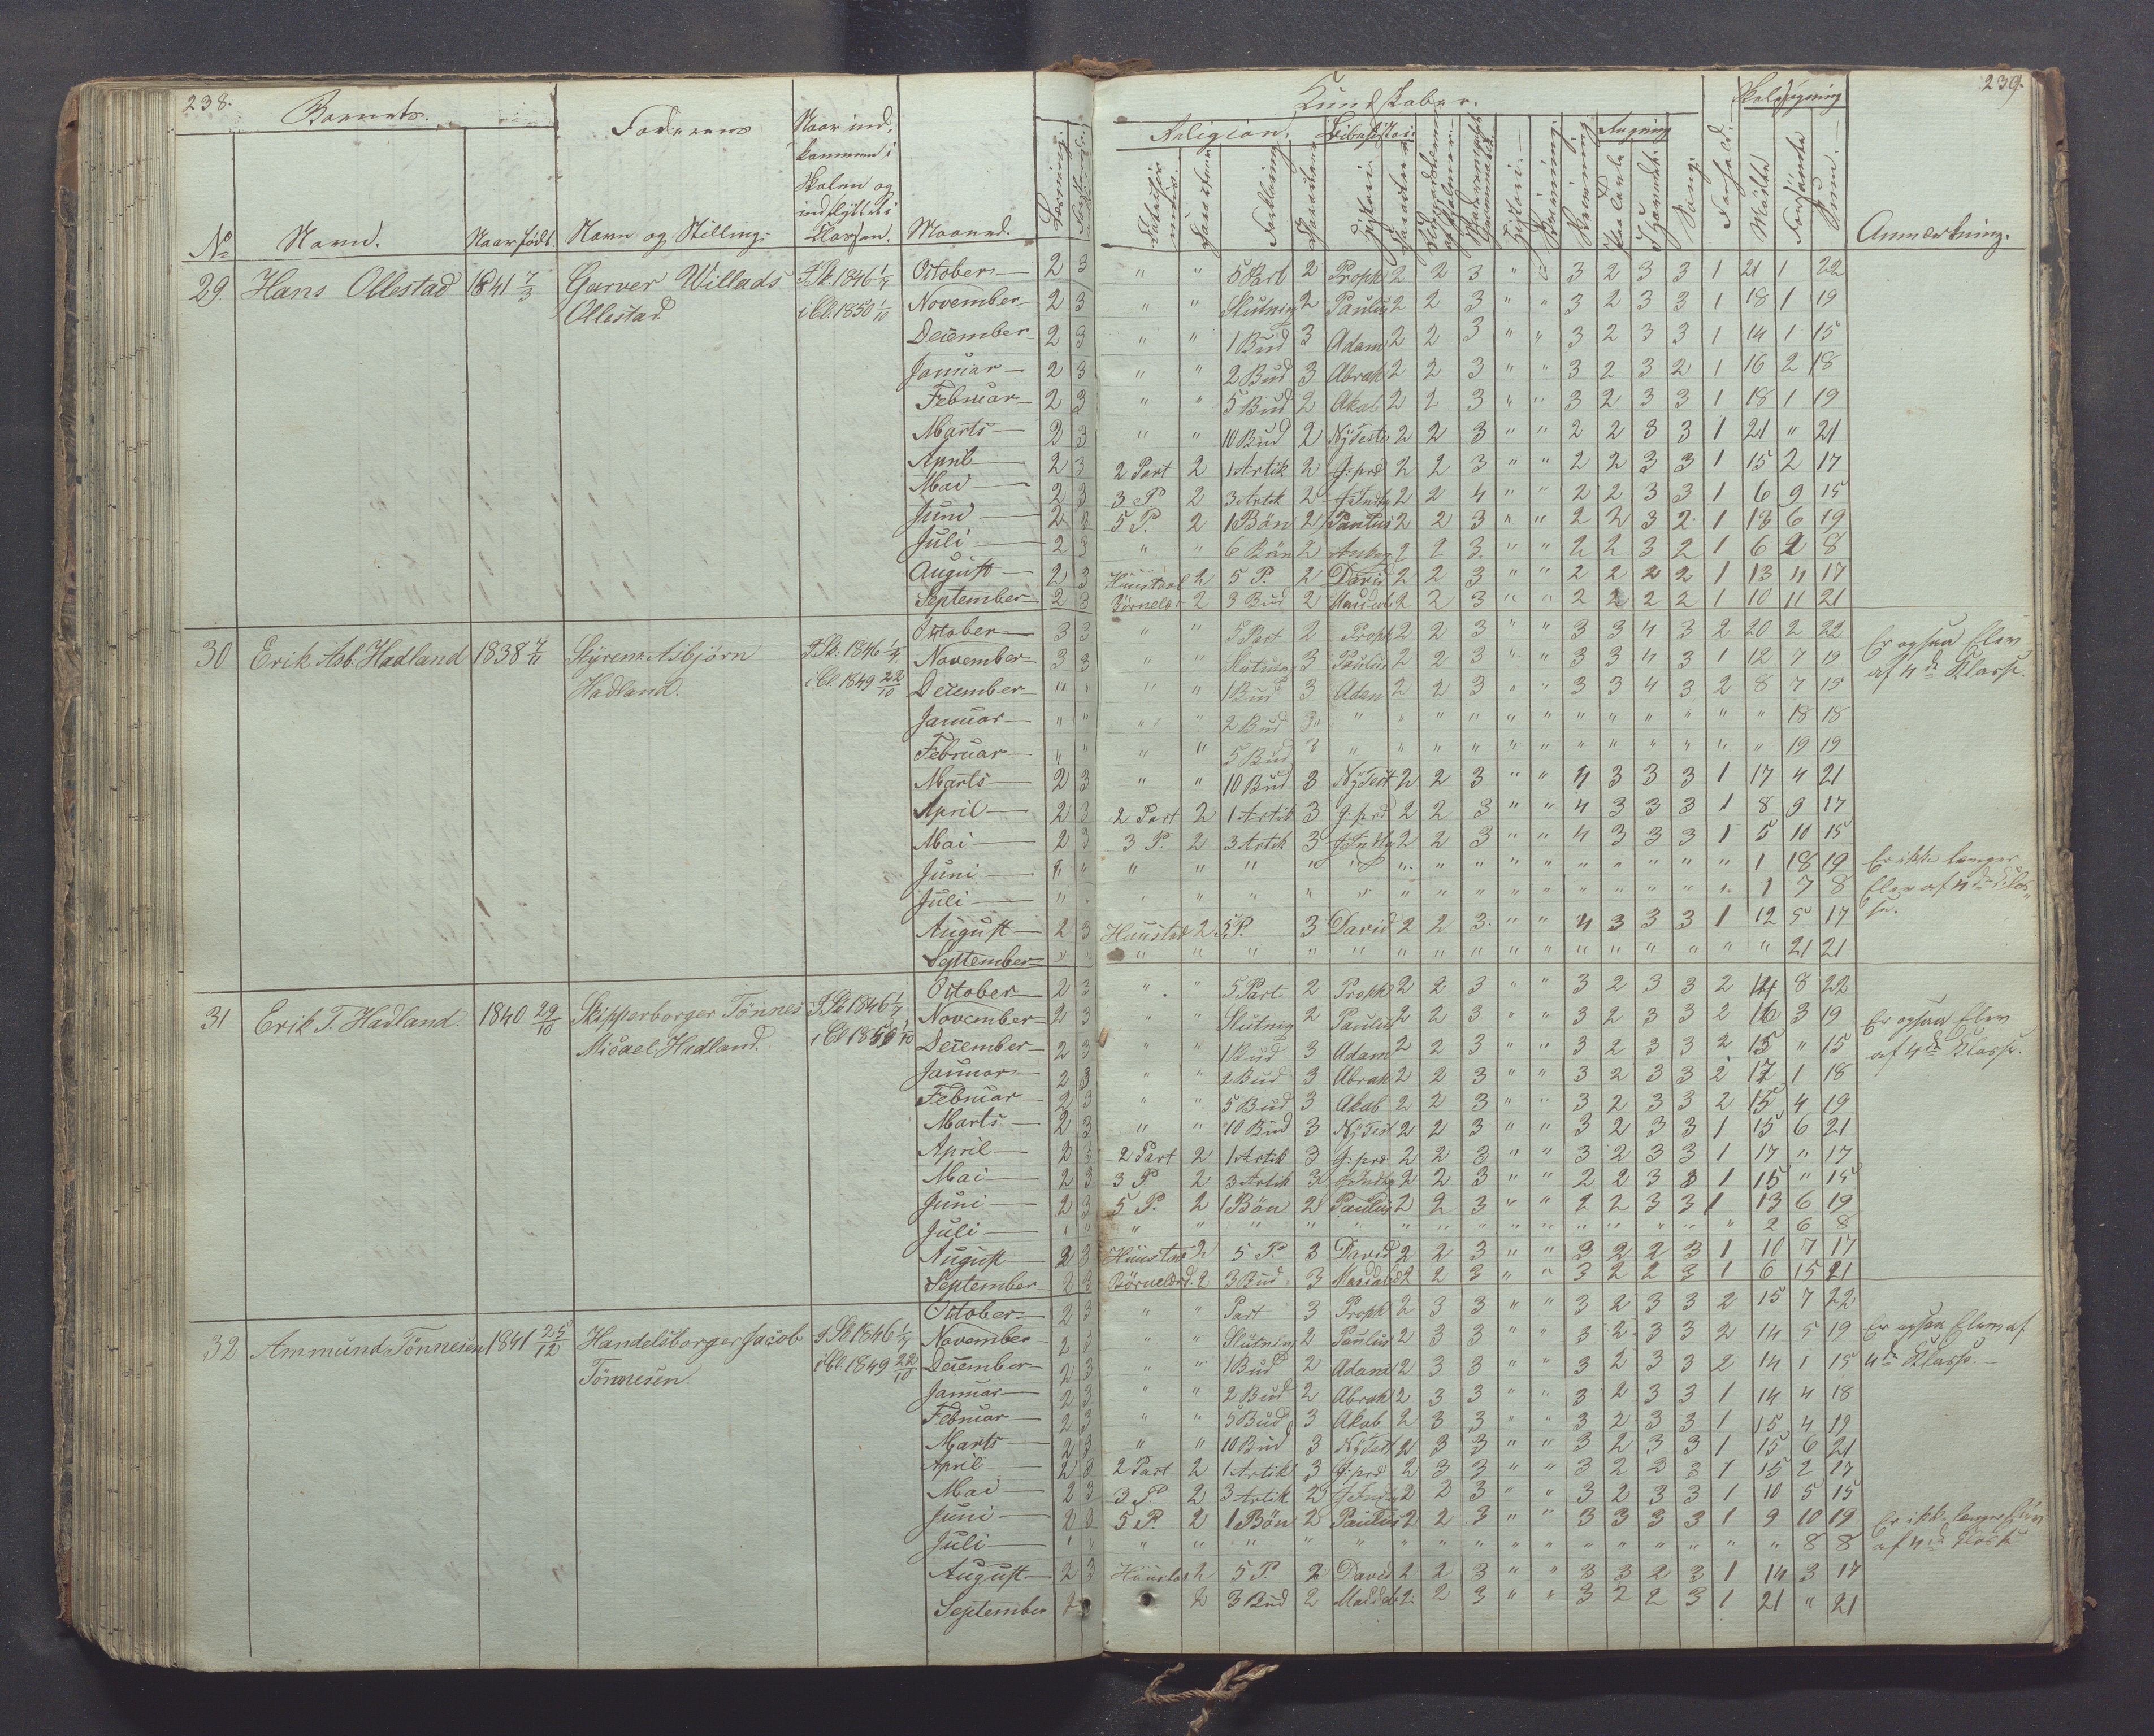 238.
Barnets.
Faderens
Naar ind-
kommen i
Skolen og
indflyttet i
Classen.
No
Navn.
Naar født.
Navn og Stilling.
Maaned.
29 Hans Ollestad 1841 7/3 Garver Willads
Ollestad
I Sk. 1846 1/7
i Cl. 1850 1/10
October 2 3
November 2 3
December 2 3
Januar 2 3
Februar 2 3
Marts 2 3
April 2 3
Mai 2 3
Juni 2 3
Juli 2 3
August 2 3
September 2 3
30 Erik Asb. Hadland 1838 7/11 Styrem. Asbjørn
Hadland.
I Sk. 1846 1/7
i Cl. 1849 22/10
October 3 3
November 3 3
December " "
Januar " "
Februar " "
Marts 2 3
April 2 3
Mai 2 3
Juni " "
Juli " "
August 2 3
September " "
31 Erik T. Hadland. 1840 29/10 Skipperborger Tönnes
Micael Hadland.
I Sk 1846 1/7
October 2 3
November 2 3
December 2 3
Januar 2 3
Februar 2 3
Marts 2 3
April 2 3
Mai 2 3
Juni 2 3
Juli " "
August 2 3
September 2 3
32 Ammund Tönnesen 1841 25/12 Handelsborger Jacob
Tönnesen.
I Sk 1846 1/7
i Cl. 1849 22/10
October 2 3
November 2 3
December 2 3
Januar 2 3
Februar 2 3
Marts 2 3
April 2 3
Mai 2 3
Juni 2 3
Juli " "
August 2 3
September
239.
Kundskaber.
Skolesøgning
Religion.
Bibelhistorie
Regning
Anmærkning.
" " 5 Part 2 Proph 2 2 3 " " 3 2 3 3 1 21 1 22
" " Slutning 2 Paulus 2 2 3 " " 3 2 3 3 1 18 1 19
" " 1 Bud 3 Adam 2 2 3 " " 3 2 3 3 1 14 1 15
" " 2 Bud 3 Abrah 2 2 3 " " 3 2 3 2 1 16 2 18
" " 5 Bud 2 Akab 2 2 3 " " 3 2 3 3 1 18 1 19
" " 10 Bud 2 Ny Teste 2 2 3 " " 2 2 3 3 1 21 " 21
2 Part 2 1 Artik 2 J: prd 2 2 3 " " 2 2 3 3 1 15 2 17
3 P. 2 3 Artk 2 J Indtg 2 2 4 " " 2 2 3 3 1 6 9 15
5 P. 2 1 Bön 2 Paulus 2 2 3 " " 2 2 3 2 1 13 6 19
" " 6 Bön 2 2 2 3 " " 2 2 3 2 1 6 2 8
Huustavl 2 5 P. 2 David 2 2 3 " " 2 2 2 2 1 13 4 17
Börnelær 2 3 Bud 2 2 2 3 " " 2 2 2 2 1 10 11 21
" " 5 Part 2 Proph 2 2 3 " " 3 3 4 3 2 20 2 22
" " Slutning 3 Paulus 2 2 3 " " 3 3 4 3 1 12 7 19
" " 1 Bud 3 Adam 2 2 3 " " 3 3 4 3 2 8 7 15
" " 2 Bud 3 " " " " " " " " " " " " " 18 18
" " 5 Bud 3 " " " " " " " " " " " " 19 19
" " 10 Bud 3 Ny Test 2 2 3 " " 4 3 3 3 1 17 4 21
2 Part 2 1 Artik 3 J: prd 2 2 3 " " 4 3 3 3 1 8 9 17
3 P. 2 3 Artik 3 J Indtg 2 2 3 " " 4 3 3 3 1 5 10 15
" " " " " " " " " " " " " " " 1 18 19
" " " " " " " " " " " " " " 1 7 8
Huustav 2 5 P. 3 David 2 2 3 " " 4 3 3 3 1 12 5 17
" " " " " " " " " " " " " " " " 21 21
Er ogsaa Elev
af 4de Klasse.
Er ikke længer
Elev af 4de Klas-
se.
" " 5 Part 2 Proph 2 2 3 " " 3 2 3 3 2 14 8 22
" " Slutnig 2 Paulus 2 2 3 " " 3 2 3 3 2 16 3 19
" " 1 Bud 3 Adam 2 2 3 " " 3 2 3 3 2 15 " 15
" " 2 Bud 3 Abrah 2 2 3 " " 3 2 3 3 2 17 1 18
" " 5 Bud 3 Akab 2 2 3 " " 3 2 3 3 2 15 4 19
" " 10 Bud 3 Ny Test 2 2 3 " " 3 2 3 3 1 15 6 21
2 Part 2 1 Artik 3 J: prd 2 2 3 " " 3 2 3 3 1 17 " 17
3 P. 2 3 Artik 3 J Indtg 2 2 3 " " 2 2 3 3 1 15 " 15
5 P. 2 1 Bön 2 Paulus 2 2 3 " " 2 2 3 3 1 13 6 19
" " " " " " " " " " " " " " " 2 6 8
Huustav 2 5 P. 3 David 2 2 3 " " 3 2 2 3 1 10 7 17
Börnelærd. 2 3 Bud 3 2 2 3 " " 3 2 2 3 1 6 15 21
Er ogsaa Elev
af 4de Klasse.
" " Part 3 Proph 2 3 3 " " 3 2 3 3 2 15 7 22
" " Slutning 2 Paulus 2 3 3 " " 3 2 3 3 2 14 5 19
" " 1 Bud 2 Adam 2 3 3 " " 3 2 3 3 2 14 1 15
" " 2 Bud 2 Abrah 2 3 3 " " 3 2 3 3 1 14 4 18
" " 5 Bud 3 Akab 2 3 3 " " 3 2 3 3 1 15 4 19
" " 10 Bud 3 Ny Test 2 3 3 " " 3 2 3 3 1 15 6 21
2 Part 2 1 Artik 3 J: prd 2 3 3 " " 3 2 3 3 1 15 2 17
3 P. 2 3 Artik 2 J Indtg 2 2 3 " " 3 2 3 3 1 10 5 15
5 P. 2 1 Bön 2 Paulus 2 2 3 " " 3 3 3 3 1 9 10 19
" " " " " " " " " " " " " " " " 8 8
Huustav 2 5 P. 2 David 2 2 3 " " 3 3 2 3 1 14 3 17
2 3 Bud 2 2 2 3 " " 3 2 2 3 1 21 " 21
Er ogsaa Elev af
4de Klasse.
Er ikke længer Elev
af 4de Klasse